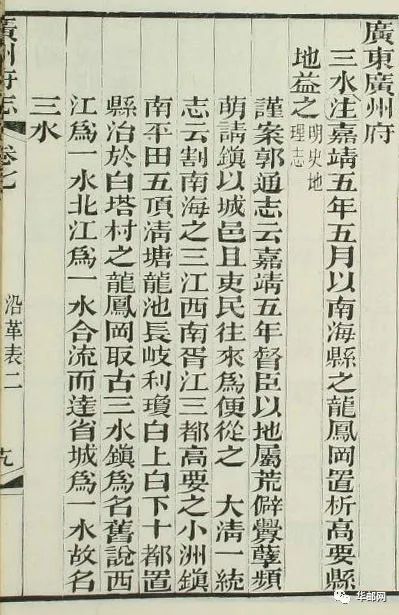 廣東廣州府
三水注嘉靖五年五月以南海縣之龍鳳岡置析高要縣
地益之明史地理志
謹案郭通志云嘉靖五年督臣以地屬荒僻釁孽頻
萌請鎮以城邑且吏民往來為便從之 大清一統
志云割南海之三江西南胥江三都高要之小洲鎮
南平田五頂清塘龍池長岐利瓊白上白下十都置
縣治於白塔村之龍鳳岡取古三水鎮為名舊說西
江為一水北江為一水合流而達省城為一水故名
三水
廣州府志
卷七
沿革表二
九
华邮网